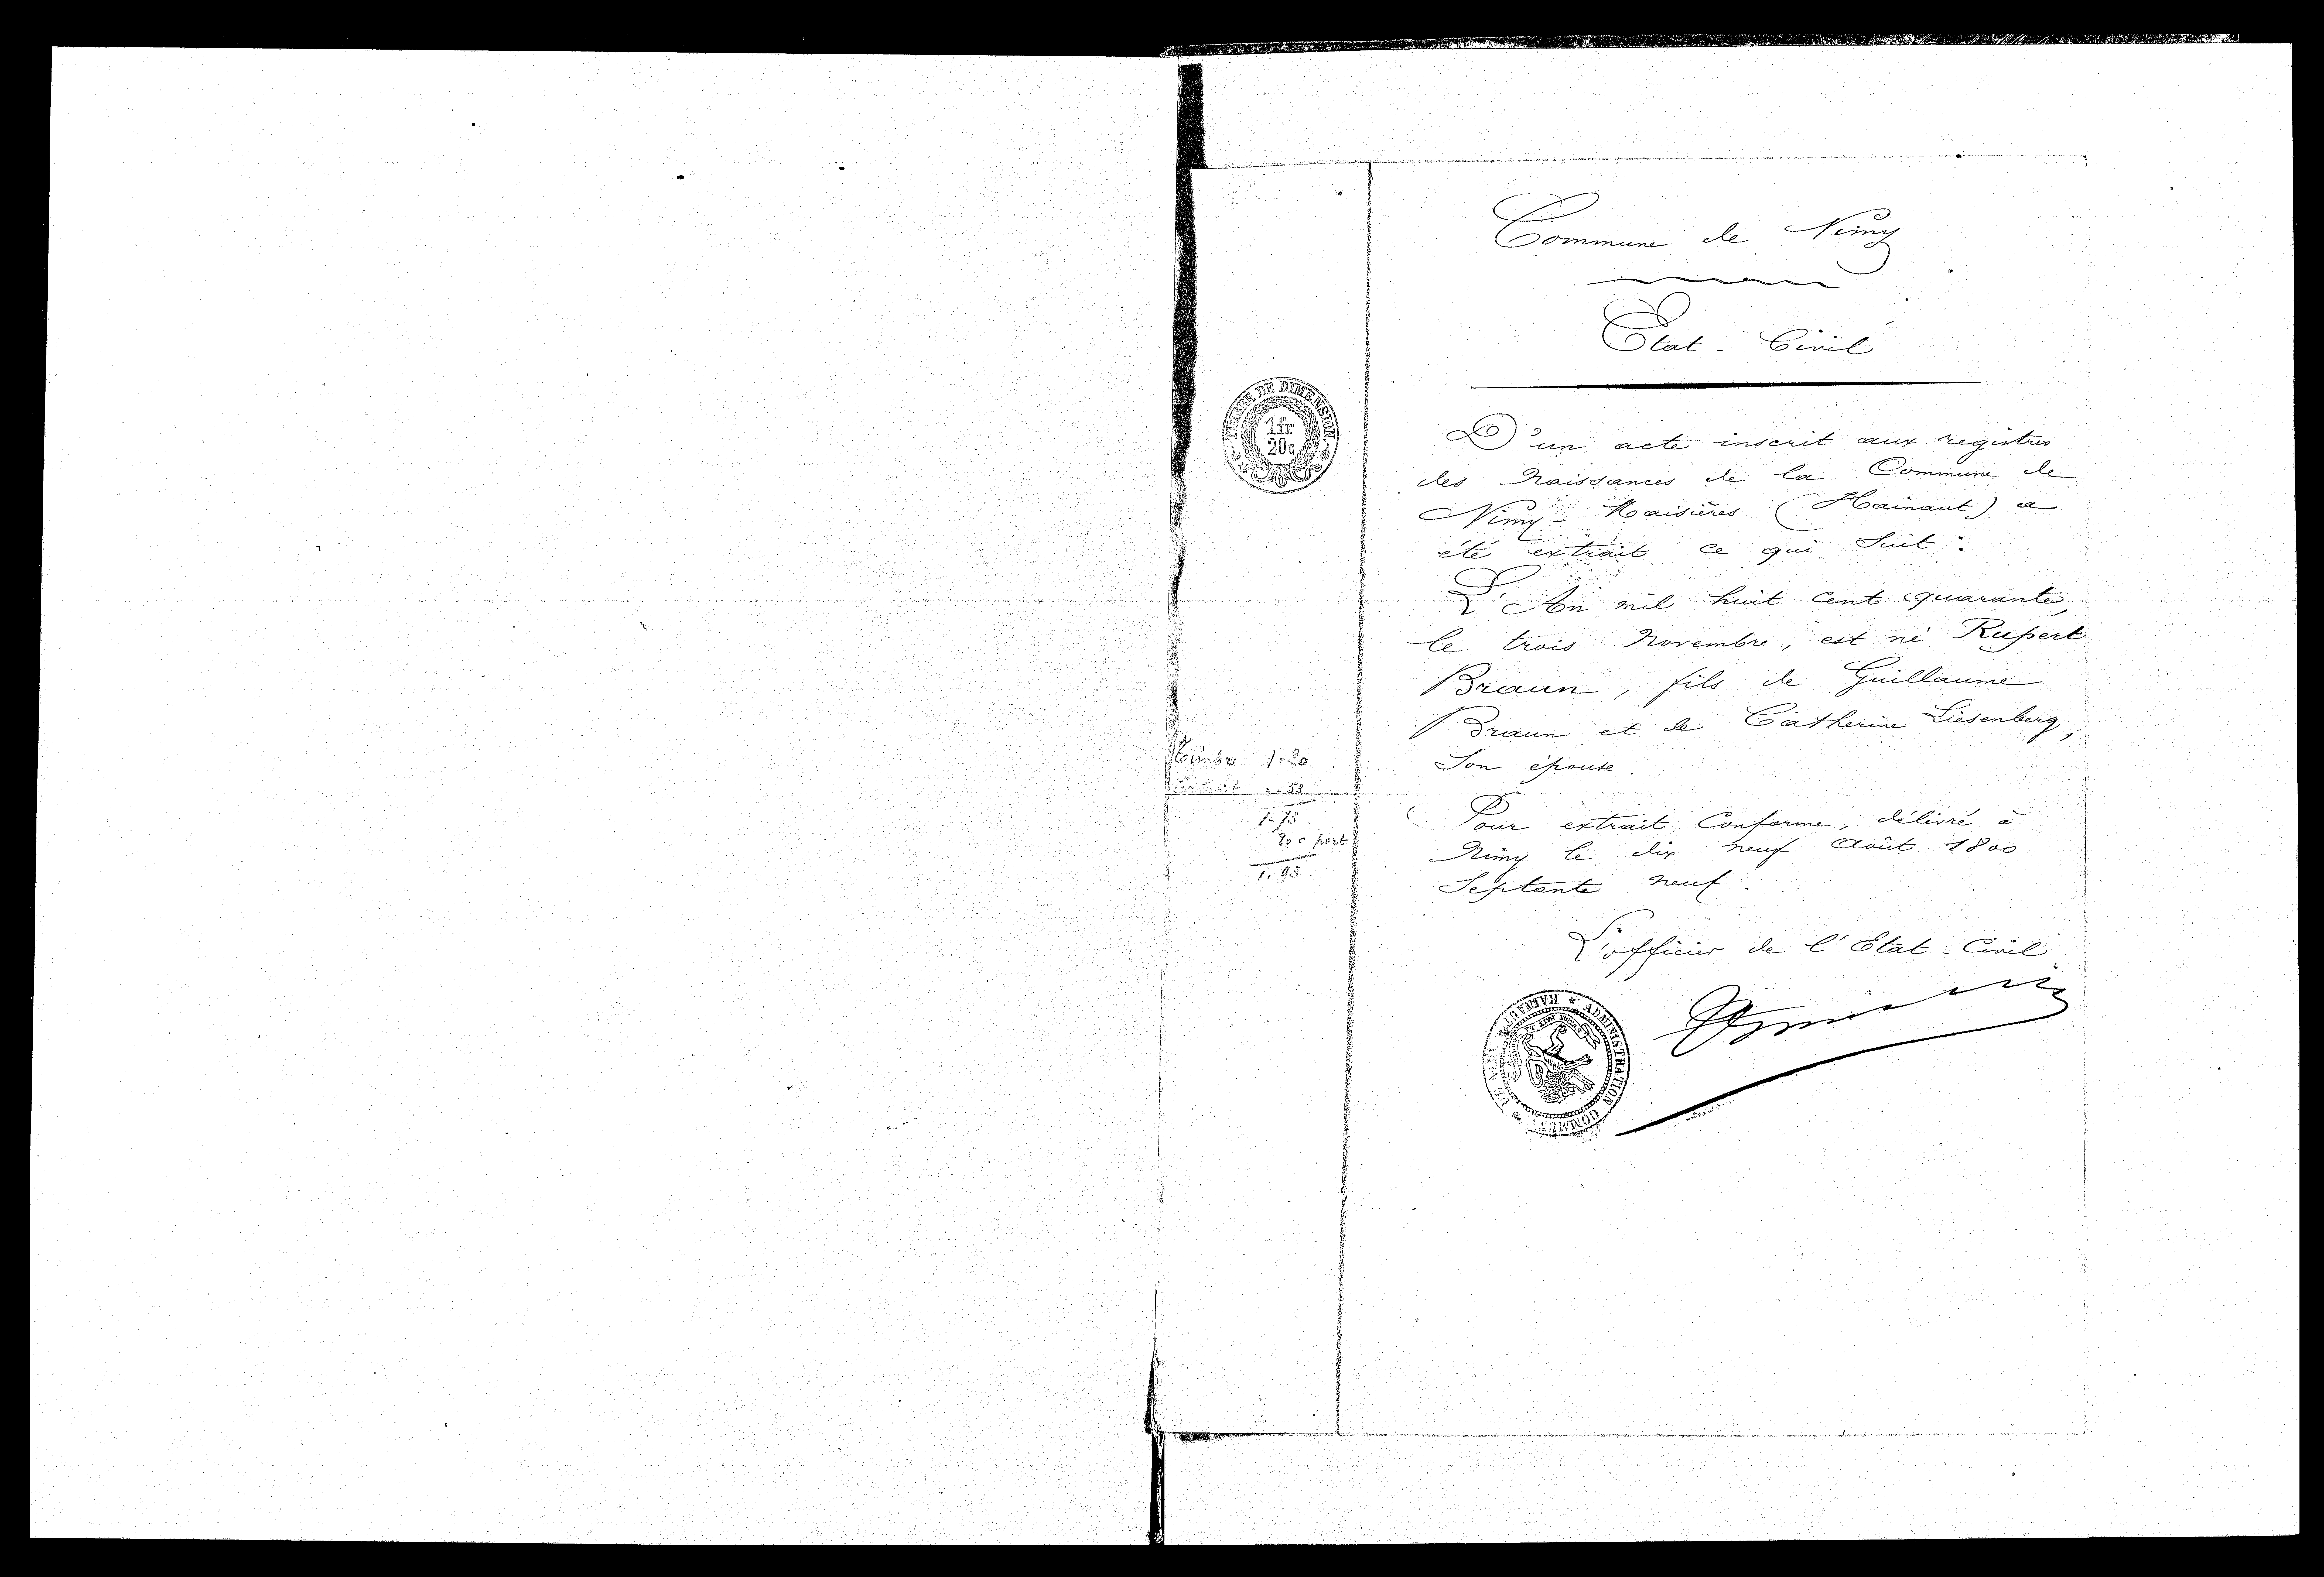 Commune de Nimy
Etat-Civil
TIMBRE DE DIMENSION
1fr
20c
D'un acte inscrit aux registres
des Naissances de la Commune de
Nimy-Maisières (Hainaut) a
été extrait ce qui suit :
L'An mil huit cent quarante,
le trois Novembre, est né Rupert
Braun, fils de Guillaume
Braun et de Catherine Liesenberg,
Son épouse.
Timbre 1.20
Extrait ..53
1-73
20 c port
1.93
Pour extrait Conforme, délivré à
Nimy le dix neuf Août 1800
Septante neuf.
L'officier de l'Etat-Civil
ADMINISTRATION COMMUNALE DE NIMY HAINAUT